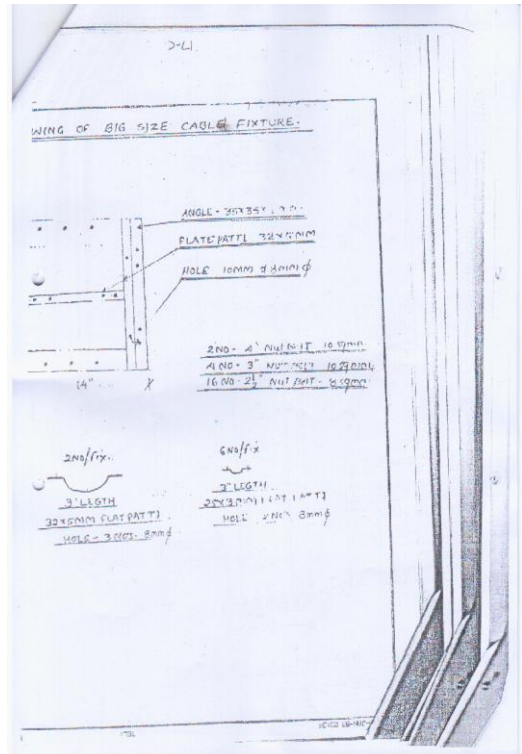 D-L1
WING OF BIG SIZE CABLE FIXTURE.
ANGLE - 35X35X
FLATE PATTI 32X5MM
HOLE 10MM & 8MM φ
2 NO - 4" NUT BOLT 10 SQMM
4 NO - 3" NUT BOLT 10 SQMM
16 NO - 2½" NUT BOLT - 8 SQMM
14"
2NO/fix.
3" LEGTH
32X5MM FLAT PATTI
HOLE - 3 NOS. 8mm φ
6NO/fix
3" LEGTH
25X3MM FLAT PATTI
HOLE 2 NOS 8mm φ